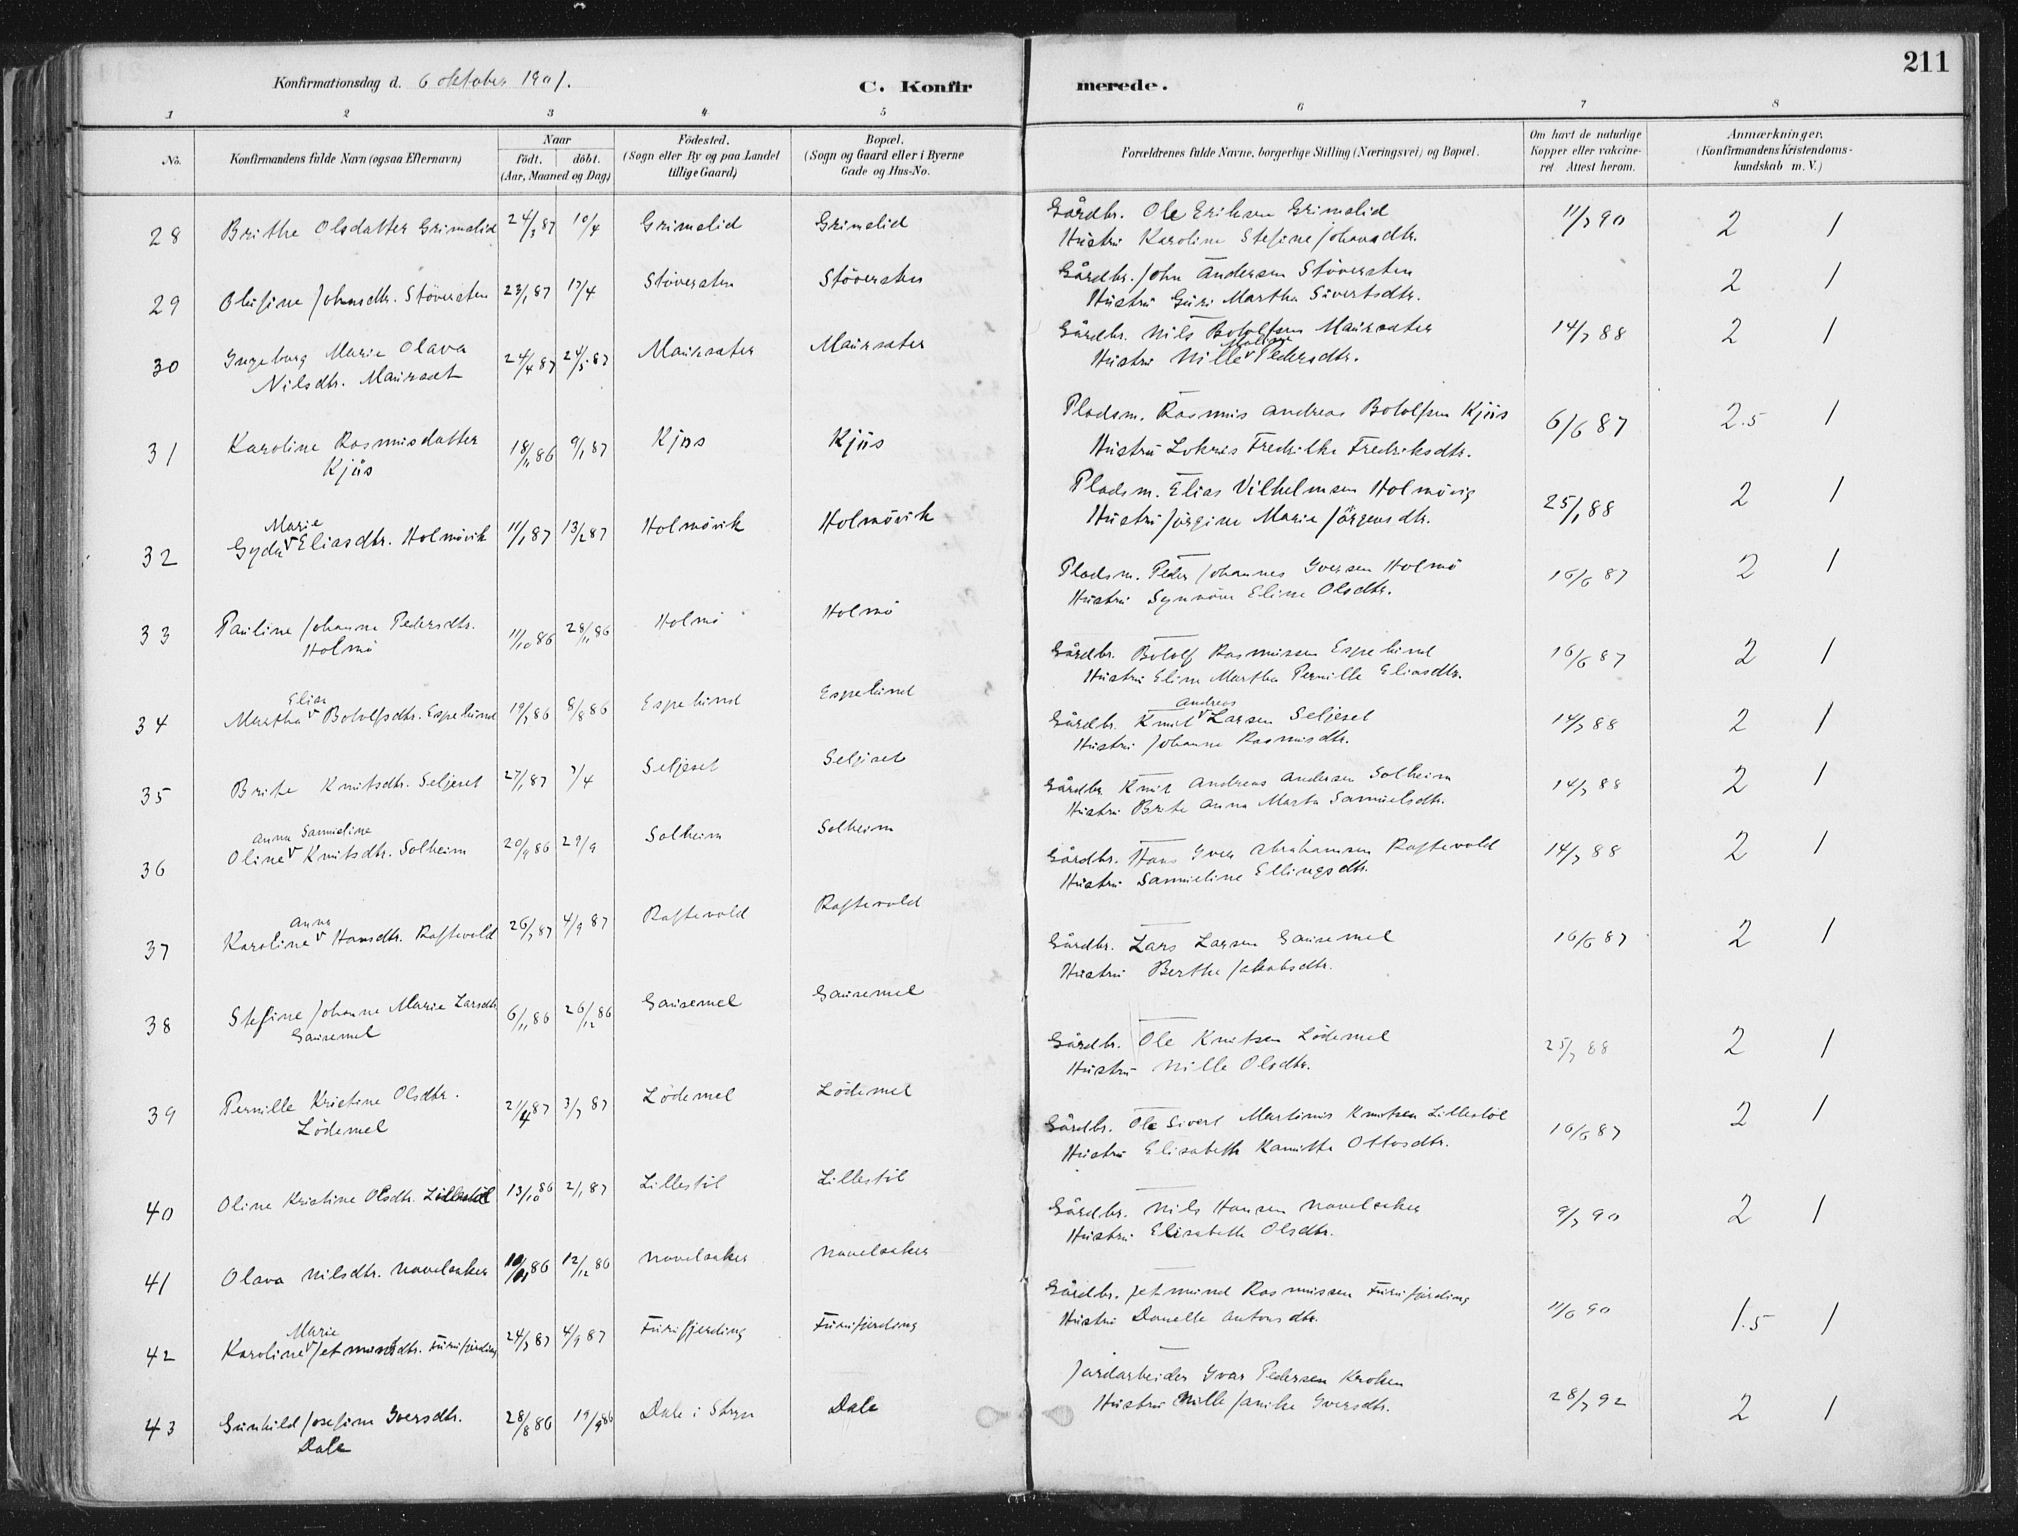 211
Konfirmationsdag d. 6 oktober 1901.
C. Konfirmerede.
1 2 3 4 5 6 7 8
No.
Konfirmandens fulde Navn (ogsaa Efternavn)
Naar
födt. döbt.
(Aar, Maaned og Dag)
Födested.
(Sogn eller By og paa Landet
tillige Gaard)
Bopæl.
(Sogn og Gaard eller i Byerne
Gade og Hus-No.
Forældrenes fulde Navne, borgerlige Stilling (Næringsvei) og Bopæl.
Om havt de naturlige
Kopper eller vakcine-
ret Attest herom.
Anmærkninger.
(Konfirmandens Kristendoms-
kundskab m. V.)
28 Brithe Olsdatter Grimelid 24/3 87 10/4 Grimelid Grimelid Gårdbr. Ole Eriksen Grimelid 11/7 90 2 1
Hustru Karoline Stefine Johansdtr.
29 Olufine Johnsdtr. Stöversten 23/1 87 17/4 Stöversten Stöversten Gårdbr. John Andersen Stöversten 2 1
Hustru Guri Martha Sivertsdtr.
30 Ingeborg Marie Olava 24/4 87 24/5 87 Maursæter Maursæter Gårdbr. Nils Botolfsen Maursæter 14/7 88 2 1
Nilsdtr. Mauraset Hustru Nille Pedersdtr.
31 Karoline Rasmusdatter 18/11 86 9/1 87 Kjøs Kjös Pladsm. Rasmus Andreas Botolfsen Kjös 6/6 87 2.5 1
Kjös Hustru Lokris Fredrikke Fredriksdtr.
Marie
32 Gyda Eliasdtr. Holmövik 11/1 87 13/2 87 Holmövik Holmövik Pladsm. Elias Vilhelmsen Holmövig 25/1 88 2 1
Hustru Jörgine Marie Jörgensdtr.
33 Pauline Johanne Pedersdtr. 11/10 86 28/11 86 Holmö Holmö Pladsm. Peder Johannes Iversen Holmö 16/6 87 2 1
Holmö Hustru Synnöve Eline Olsdtr.
Elise
34 Martha Botolfsdtr. Espelund 19/7 86 8/8 86 Espelund Espelund Gårdbr. Botolf Rasmussen Espelund 16/6 87 2 1
Hustru Eline Martha Pernille Eliasdtr.
Andreas
35 Brite Knutsdtr. Seljeset 27/1 87 7/4 Seljeset Seljeset Gårdbr. Knut Larsen Seljeset 14/7 88 2 1
Hustru Johanne Rasmusdtr.
Anna Samueline
36 Oline Knutsdtr. Solheim 20/9 86 29/9 Solheim Solheim Gårdbr. Knut Andreas Andersen Solheim 14/7 88 2 1
Hustru Brite Anna Marta Samuelsdtr.
Anna
37 Karoline Hansdtr. Raftevold 26/7 87 4/9 87 Raftevold Raftevold Gårdbr. Hans Iver Abrahamsen Raftevold 14/7 88 2 1
Hustru Samueline Ellingsdtr.
38 Stefine Johanne Marie Larsdtr. 6/11 86 26/12 86 Gausemel Gausemel Gårdbr. Lars Larsen Gausemel 16/6 87 2 1
Gausemel Hustru Berthe Jakobsdtr.
39 Pernille Kristine Olsdtr. 21/4 87 3/7 87 Lödemel Lödemel Gårdbr. Ole Knutsen Lödemel 25/7 88 2 1
Lödemel Hustru Nille Olsdtr.
40 Oline Kristine Olsdtr. Lillestöl 13/10 86 2/1 87 Lillestöl Lillestöl Gårdbr. Ole Sivert Martinus Knutsen Lillestöl 16/6 87 2 1
Hustru Elisabeth Kamitte Ottosdtr.
41 Olava Nilsdtr. Navelsaker 10/11 86 12/12 86 Navelsaker Navelsaker Gårdbr. Nils Hansen Navelsaker 9/7 90 2 1
Hustru Elisabeth Olsdtr.
Marie
42 Karoline Jetmundsdtr. Furufjerding 24/7 87 4/9 87 Furufjerding Furufjerding Gårdbr. Jetmund Rasmussen Furufjerding 11/6 90 1.5 1
Hustru Danelle Antonsdtr.
43 Gunhild Josefine Iversdtr. 28/8 86 19/9 86 Dale i Stryn Dale Jordarbeider Ivar Pedersen Kroken 28/7 92 2 1
Dale Hustru Nille Janike Iversdtr.